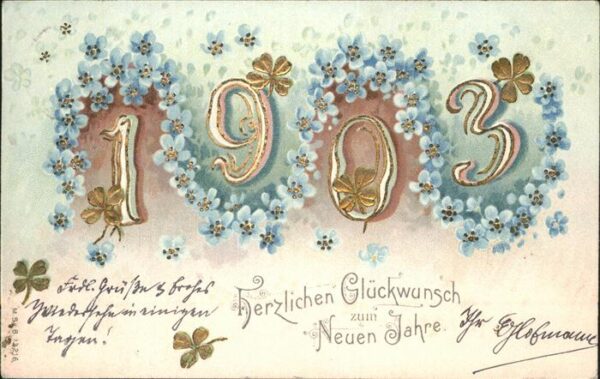 1903
Herzlichen Glückwunsch
zum
Neuen Jahre.
Frdl. Grüße & frohes
Wiedersehn in einigen
Tagen!
Ihr